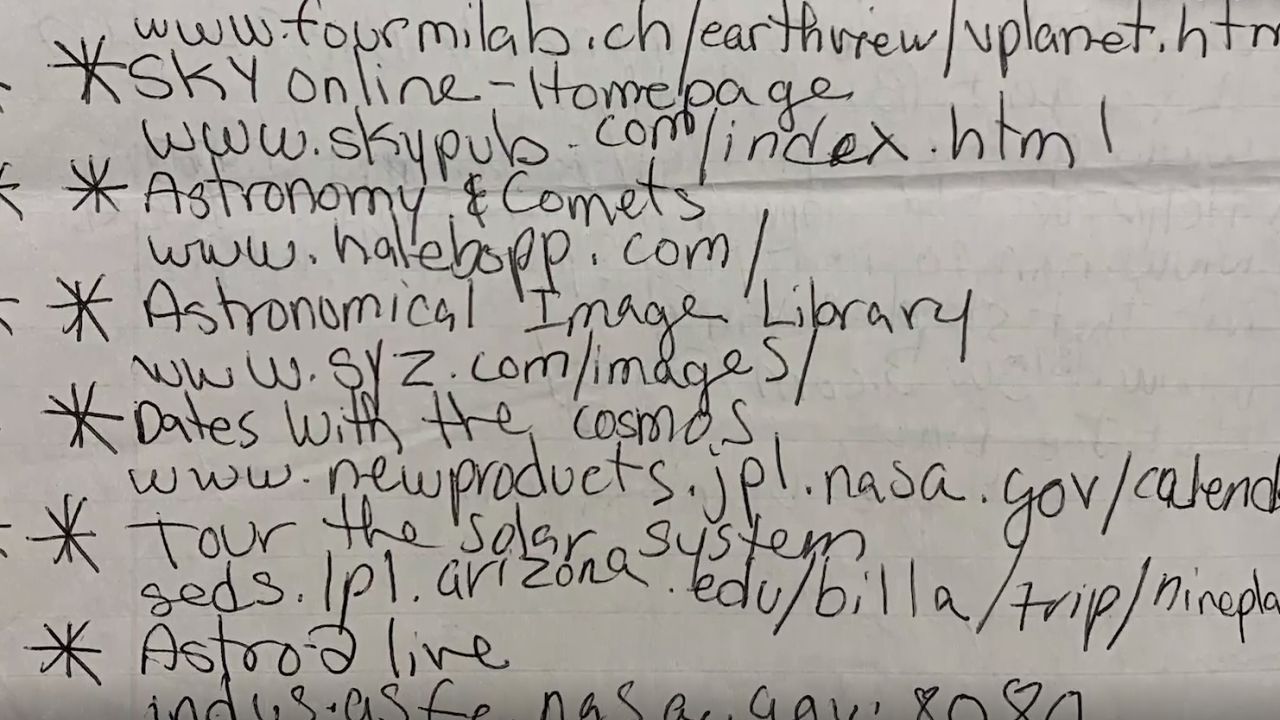 www.fourmilab.ch/earthview/vplanet.htm
* SKY Online - Homepage
www.skypub.com/index.html
* Astronomy & Comets
www.halebopp.com/
* Astronomical Image Library
www.syz.com/images/
* Dates with the cosmos
www.newproducts.jpl.nasa.gov/calend
* Tour the solar system
seds.lpl.arizona.edu/billa/trip/ninepla
* Astro-2 live